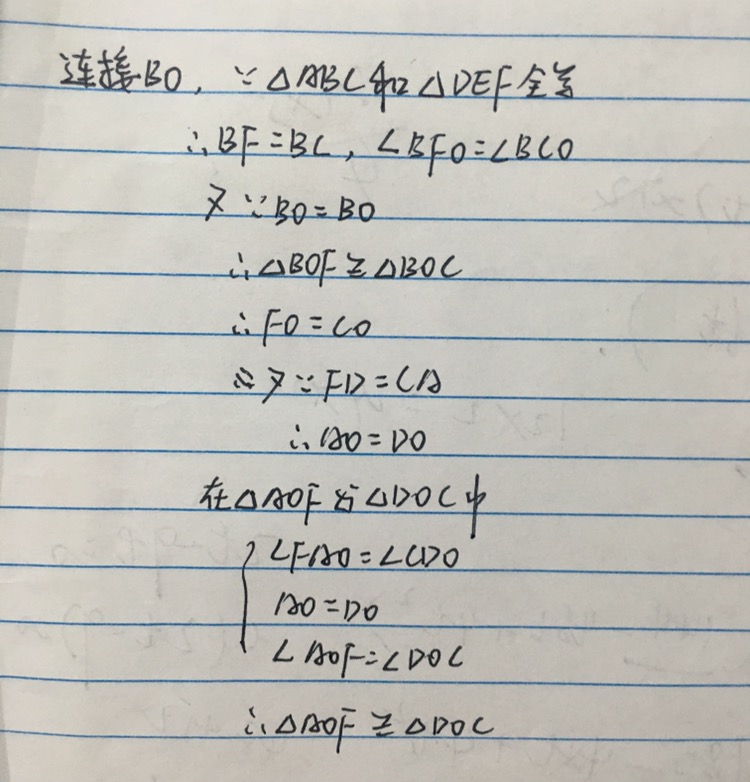 连接BO, ∵△ABC和△DEF全等
∴BF=BC, ∠BFO=∠BCO
又∵BO=BO
∴△BOF≌△BOC
∴FO=CO
又∵FD=CA
∴AO=DO
在△AOF与△DOC中
∠FAO=∠CDO
AO=DO
∠AOF=∠DOC
∴△AOF≌△DOC